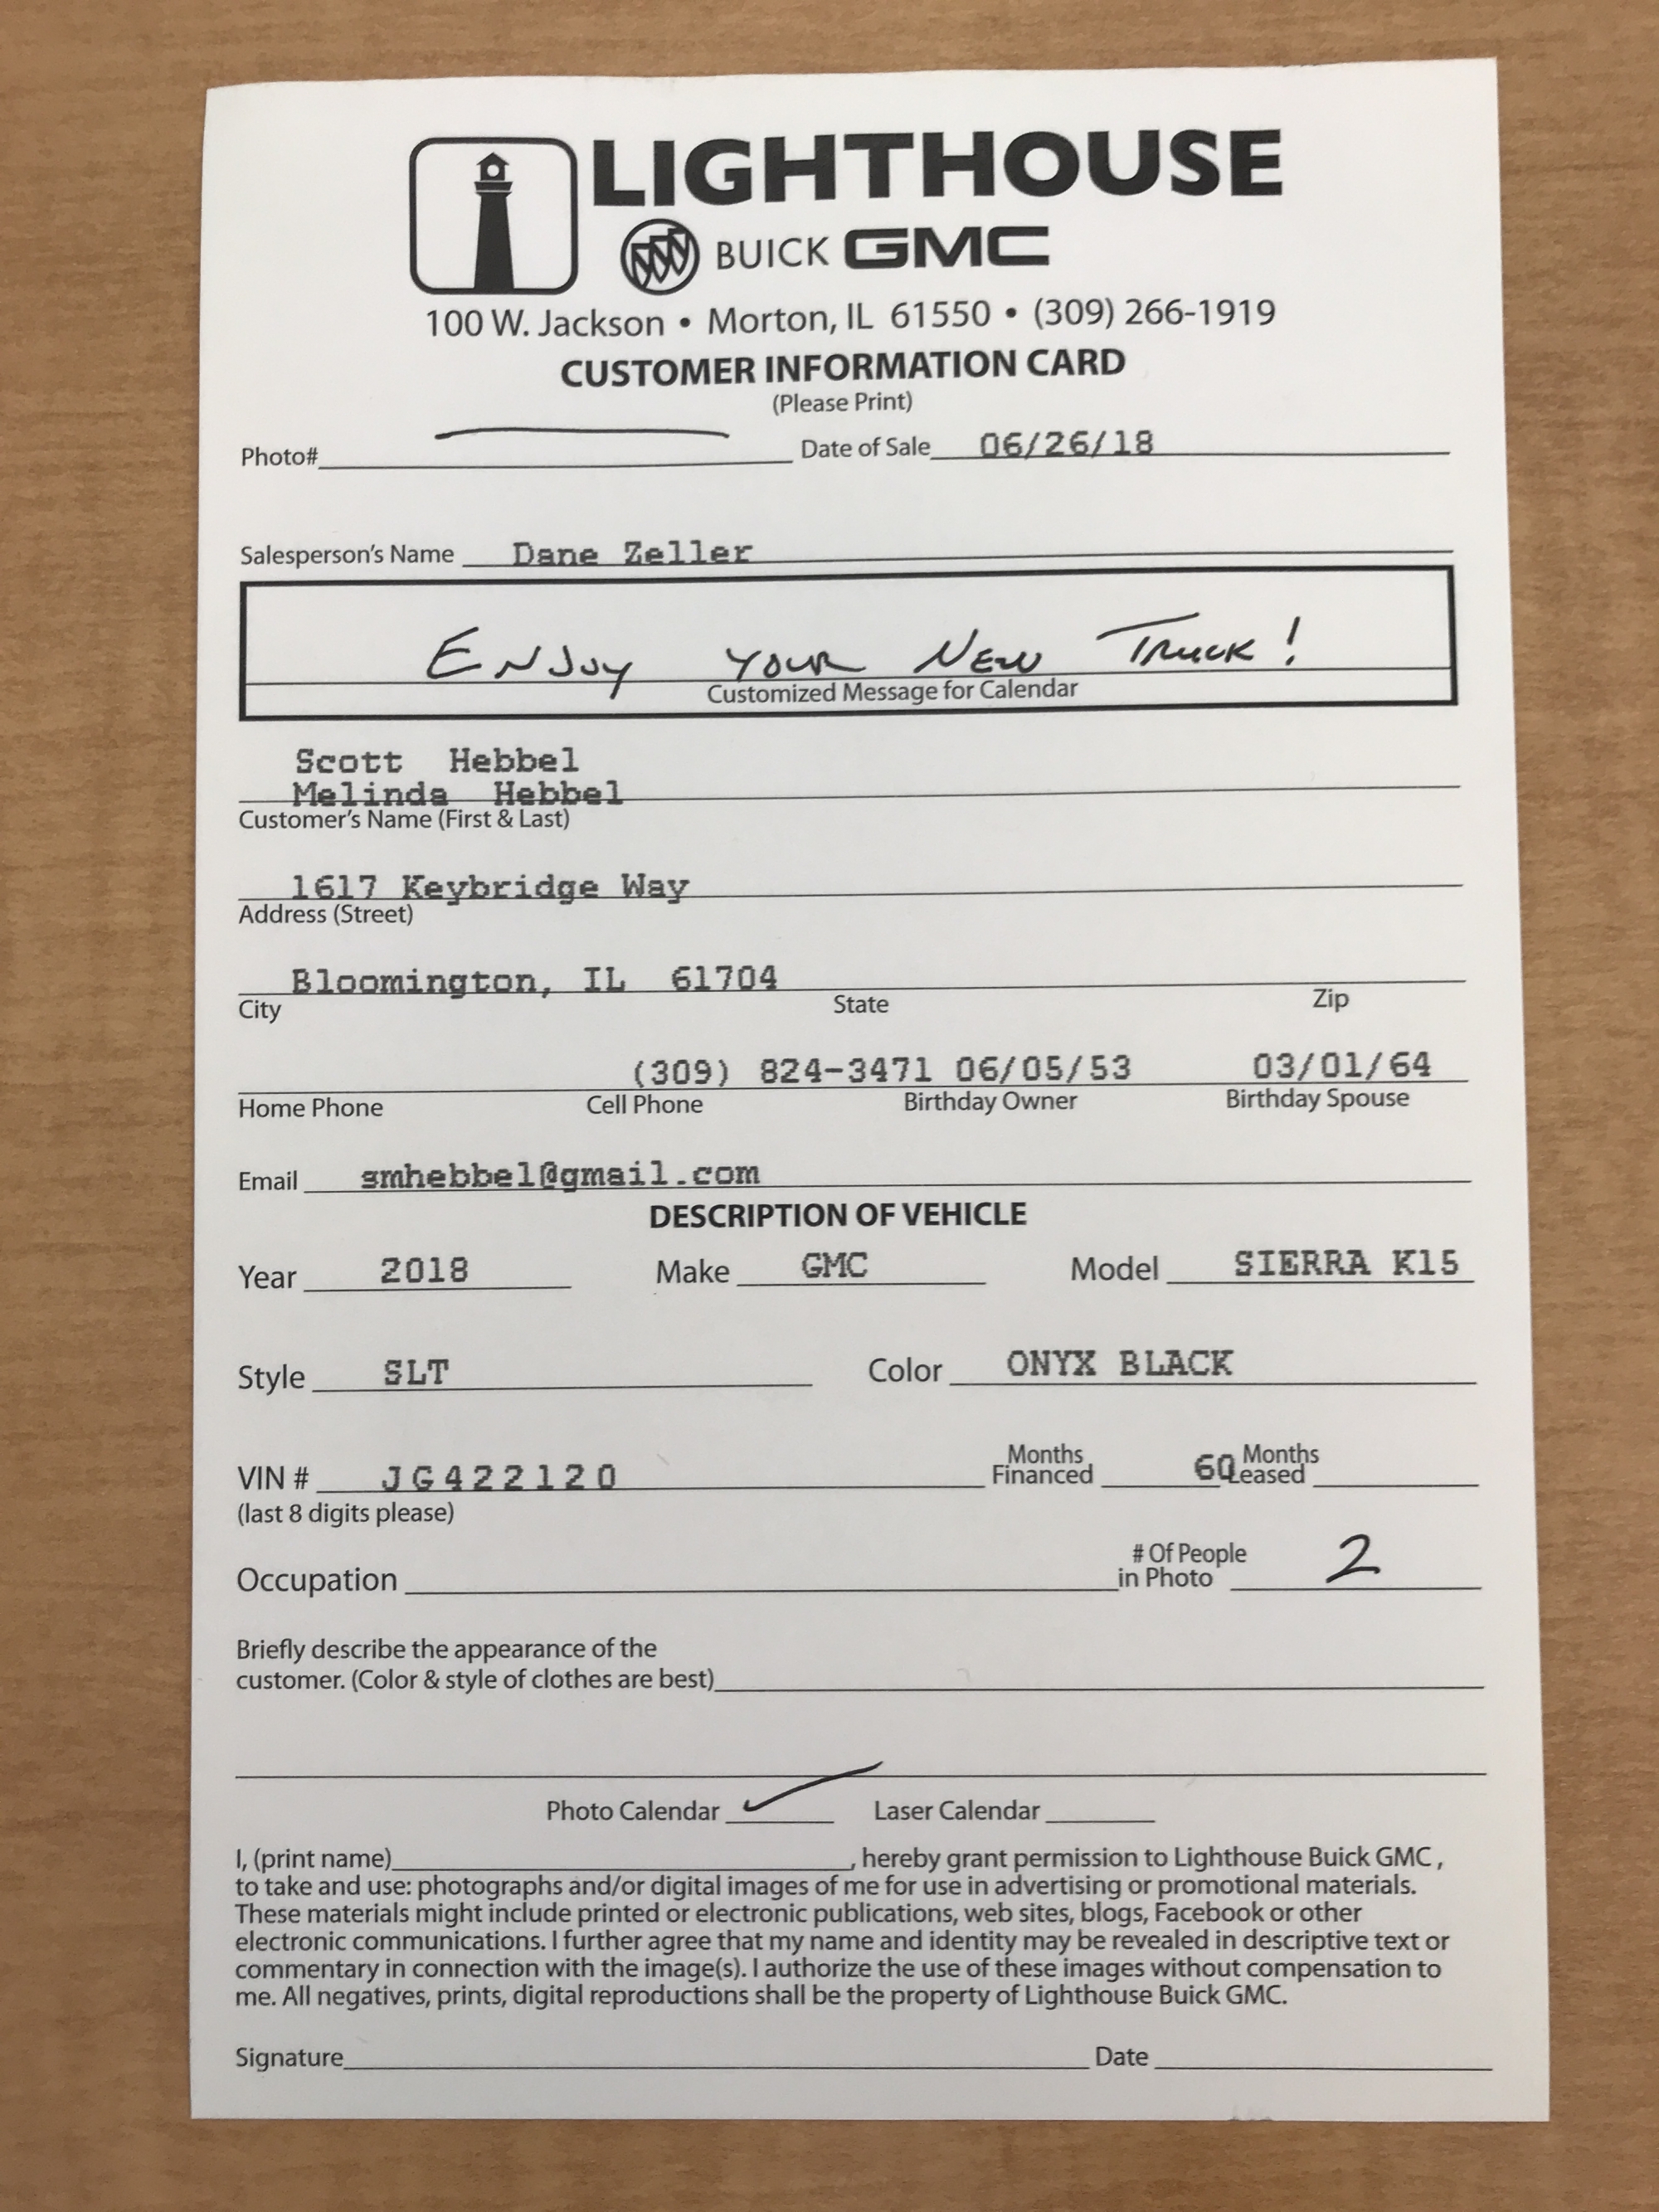 LIGHTHOUSE
BUICK GMC
100 W. Jackson • Morton, IL 61550 • (309) 266-1919
CUSTOMER INFORMATION CARD
(Please Print)
Photo# Date of Sale 06/26/18
Salesperson's Name Dane Zeller
ENJOY YOUR NEW TRUCK!
Customized Message for Calendar
Scott Hebbel
Melinda Hebbel
Customer's Name (First & Last)
1617 Keybridge Way
Address (Street)
Bloomington, IL 61704
City State Zip
(309) 824-3471 06/05/53 03/01/64
Home Phone Cell Phone Birthday Owner Birthday Spouse
Email smhebbel@gmail.com
DESCRIPTION OF VEHICLE
Year 2018 Make GMC Model SIERRA K15
Style SLT Color ONYX BLACK
VIN # JG422120 Months Financed 60 Months Leased
(last 8 digits please)
Occupation # Of People in Photo 2
Briefly describe the appearance of the
customer. (Color & style of clothes are best)
Photo Calendar ✓ Laser Calendar
I, (print name) , hereby grant permission to Lighthouse Buick GMC ,
to take and use: photographs and/or digital images of me for use in advertising or promotional materials.
These materials might include printed or electronic publications, web sites, blogs, Facebook or other
electronic communications. I further agree that my name and identity may be revealed in descriptive text or
commentary in connection with the image(s). I authorize the use of these images without compensation to
me. All negatives, prints, digital reproductions shall be the property of Lighthouse Buick GMC.
Signature Date